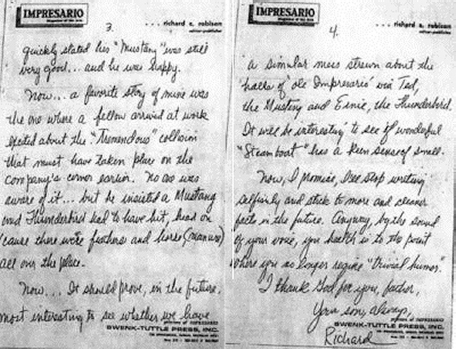 IMPRESARIO
... richard s. robison
editor-publisher
3.
quickly stated his "Mustang" was still
very good... and he was happy.
Now... a favorite story of mine was
the one where a fellow arrived at work
about the "Tremendous" collision
that must have taken place on the
company's corner earlier. No one was
aware of it... but he insisted a Mustang
and Thunderbird had to have hit, head on
'cause there were feathers and horse (manure)
all over the place.
Now... It should prove, in the future,
most interesting to see whether we have
SWENK-TUTTLE PRESS, INC.
IMPRESARIO
... richard s. robison
editor-publisher
4.
a similar mess strewn about the
"halls of 'ole Impresario" via Ted,
the Mustang and Ernie, the Thunderbird.
It will be interesting to see if wonderful
"Steamboat" has a keen sense of smell.
Now, I Promise, I'll stop writing
selfishly and stick to more and cleaner
facts in the future. Anyway, by the sound
of your voice, your health is to the point
where you no longer require "trivial humor."
I thank God for you, father,
Your son, always,
Richard
SWENK-TUTTLE PRESS, INC.